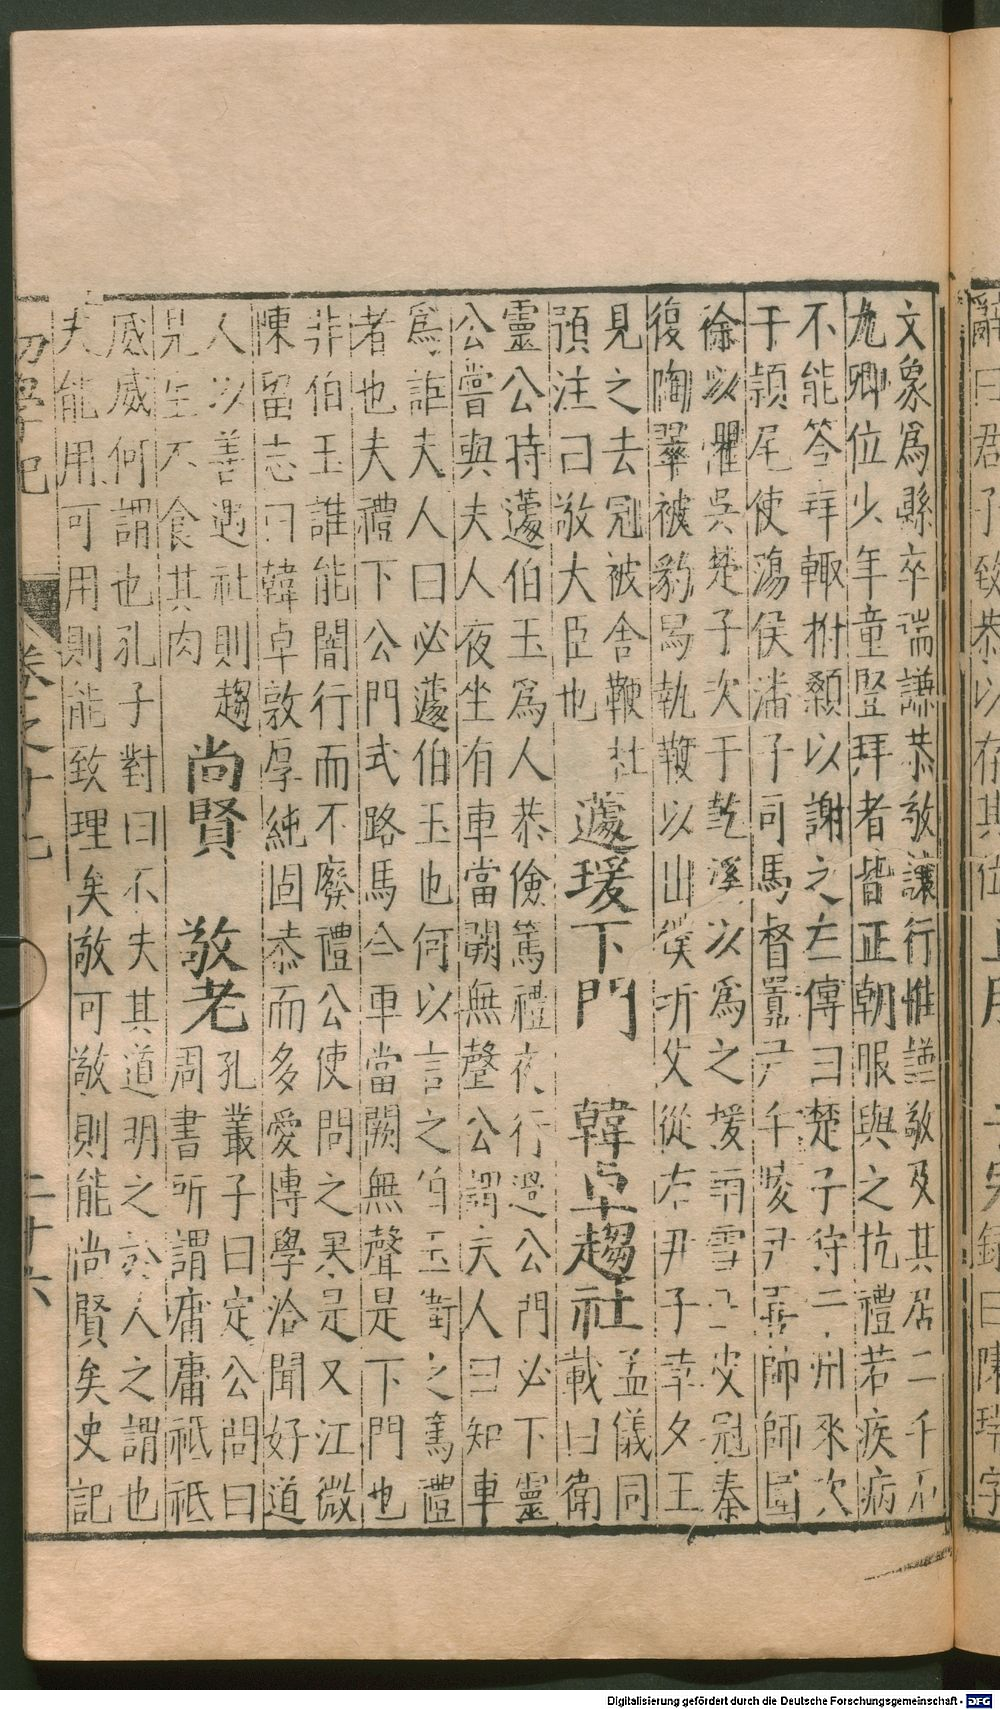 辭曰君子致恭以存其位
錄曰陳瑞字
文象爲縣卒瑞謙恭敬讓行惟謹敬及其居二千石
九卿位少年童竪拜者皆正朝服與之抗禮若疾病
不能答拜輙拊顙以謝之左傳曰楚子狩于州來次
于頴尾使蕩侯潘子司馬督嚚尹午陵尹喜師師圍
徐以懼吳楚子次于乾溪以爲之援雨雪王皮冠秦
復陶翠被豹舄執鞭以出僕析父從右尹子革夕王
見之去冠被舍鞭杜
預注曰敬大臣也
蘧瑗下門 韓卓趨社
孟儀同
載曰衛
靈公時蘧伯玉爲人恭儉篤禮夜行過公門必下靈
公嘗與夫人夜坐有車當闕無聲公謂夫人曰知車
爲誰夫人曰必蘧伯玉也何以言之伯玉衛之篤禮
者也夫禮下公門式路馬今車當闕無聲是下門也
非伯玉誰能闇行而不廢禮公使問之果是又江微
陳留志曰韓卓敦厚純固恭而多愛博學洽聞好道
人以善遇社則趨
見生不食其肉
尚賢 敬老
孔叢子曰定公問曰
周書所謂庸庸祗祗
威威何謂也孔子對曰不失其道明之於人之謂也
夫能用可用則能致理矣敬可敬則能尚賢矣史記
初學記 卷之十七 二十六
Digitalisierung gefördert durch die Deutsche Forschungsgemeinschaft - DFG